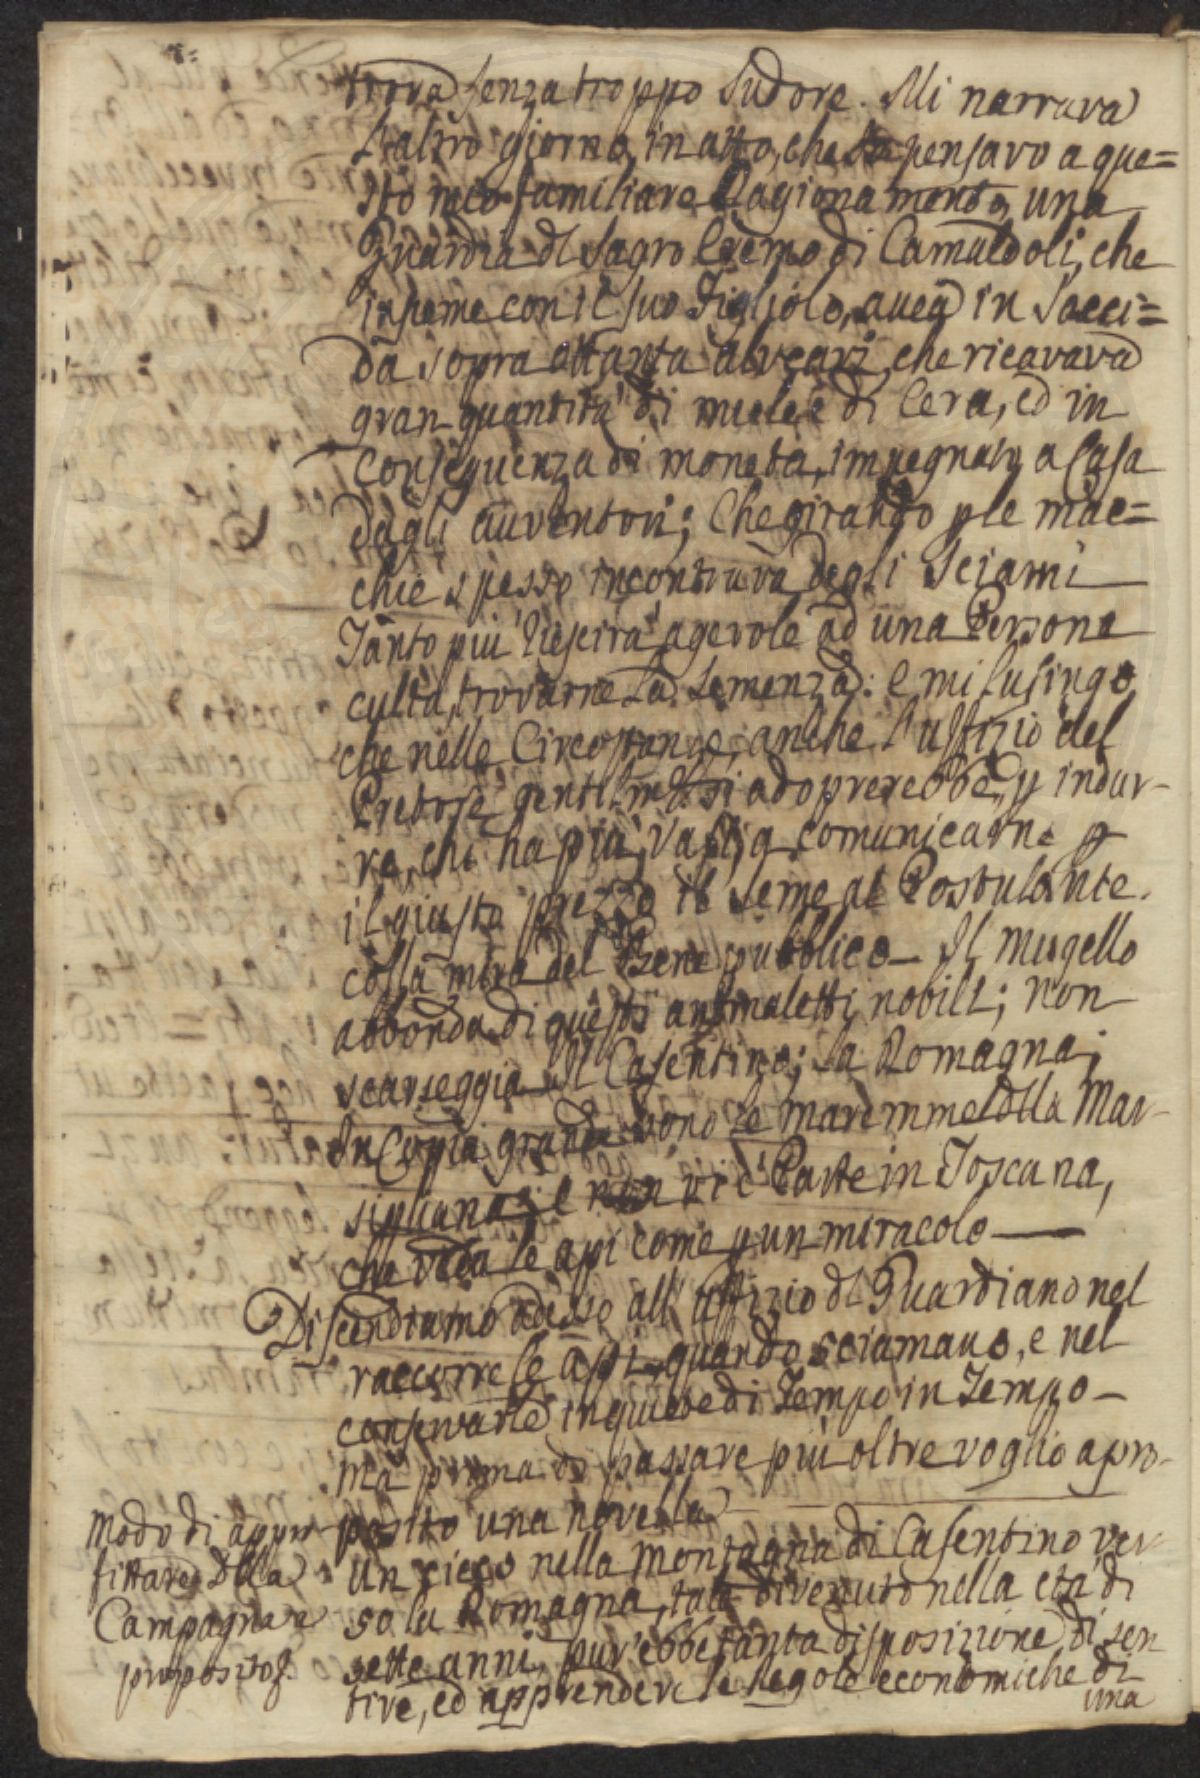 trova senza troppo sudore. Mi narrava
l'altro giorno, in atto, che pensavo a que=
sto mio familiare Ragionamento, una
Guardia dl sagro Eremo di Camaldoli, che
insieme con il suo Figliolo, avea in Socci=
da sopra ottanta alveari, che ricavava
gran quantità di miele e di Cera, ed in
conseguenza di moneta, a Casa
dagli avventori; Che girando p le mac=
chie spesso incontrava degli sciami
Tanto più riescirà agevole ad una Persona
culta, trovarne la semenza: e mi lusingo
che nelle Circostanze, anche l'uffizio del
Pretore gentilm.te si adoprerebbe, p indur-
re, chi ha più Vasi, a comunicarne p
il giusto prezzo il seme al Postulante.
colla mira del Bene pubblico - Il Mugello
abbonda di questi animaletti nobili; non
scarseggia il Casentino; la Romagna;
In Copia grande sono le maremme della Mar-
siliana; e non vi è Parte in Toscana,
che veda le api come p un miracolo —
Discendiamo adesso all'uffizio dl Guardiano nel
raccorre le api, quando sciamano, e nel
conservarle in quiete di Tempo in Tempo -
ma prima di passare più oltre voglio apro-
posito una novella
Un cieco nella montagna di Casentino ver-
so la Romagna, tale divenuto nella età di
sette anni, pur'ebbe tanta disposizione di sen
tire, ed apprendere le Regole economiche di
una
Modo di appro
fittare della
Campagna a
proposito